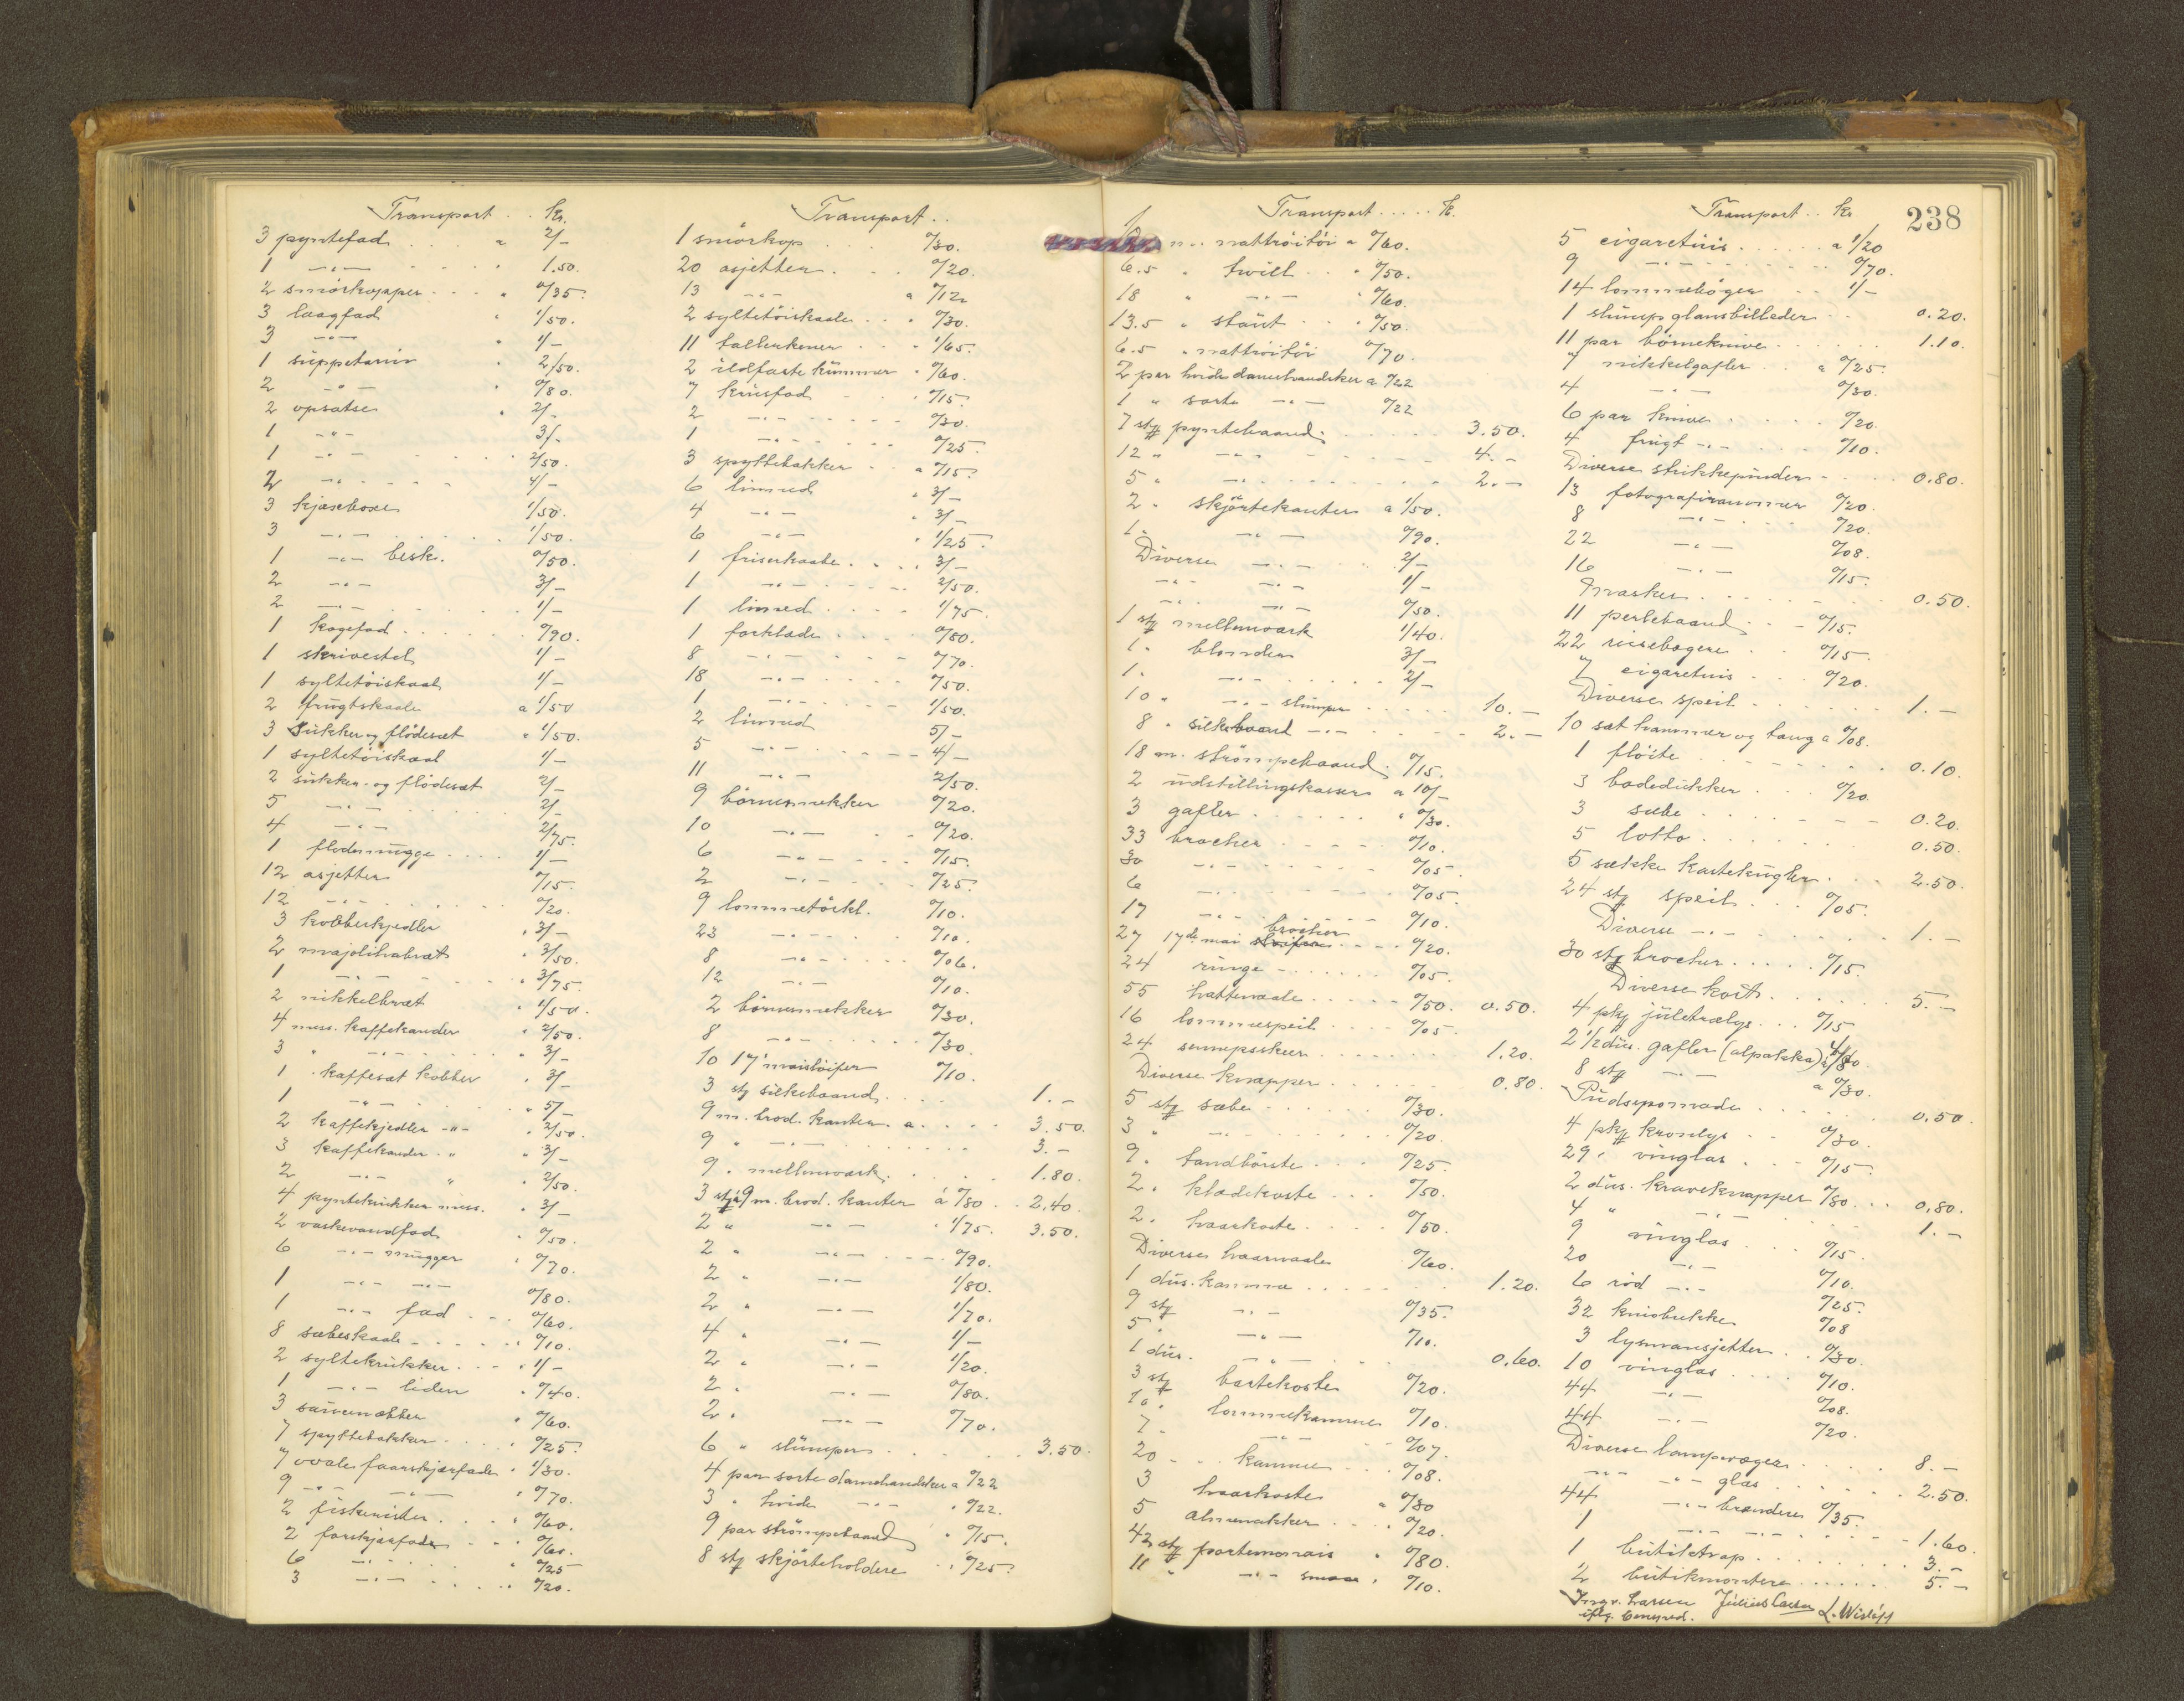 Transport . . Kr.
3 pyntefad . . " 2/-
1 -"- . . . . " 1.50.
2 smørkopper . . . " 0/35.
3 laagfad " 1/50.
3 -"- " 1/-
1 suppeterrin " 2/50.
2 -"- " 0/80.
2 opsatser " 2/-
1 -"- 3/-
1 -"- . . . . . 2/50.
2 -"- . . . . 4/-
3 kjæseboxer 1/50.
3 -"- . . . . . 1/50.
1 -"- besk. 0/50.
2 -"- 3/-
2 -"- . . . . . 1/-
1 kagefad . . . . . 0/90.
1 skrivestel 1/-
1 syltetøiskaal 1/-
2 frugtskaale a 1/50
3 Sukker og flødesæt " 1/50.
1 syltetøiskaal 1/-
2 sukker- og flødesæt 2/-
5 -"- . . . . 2/-
4 -"- 2/75.
1 flødemugge . . . . 1/-
12 asjetter 0/15.
12 -"- . . . . . 0/20.
3 kobberkjedler " 3/-
2 majolikabræt " 3/50.
1 -"- . . . . " 3/75.
2 nikkelbræt " 1/50.
4 mess. kaffekander " 2/50.
3 " -"- . . . . " 3/-
1 kaffesæt kobber " 3/-
1 -"- . . . . " 5/-
2 kaffekjedler -"- " 2/50.
3 kaffekander " " 3/-
2 -"- " " 2/50.
4 pyntekrukker mess. " 3/-
2 vaskevandfad " 0/50.
6 -"- mugger " 0/70.
1 -"- -"- 0/80.
1 -"- fad . . . 0/60.
8 sæbeskaale . . . . . 0/10.
2 syltekrukker . . . " 1/-
1 -"- liden " 0/40.
3 " 0/60.
7 spyttebakker . . . . " 0/25.
7 ovale faarskjærfade " 1/30.
9 -"- -"- " 0/70.
2 . . . . " 0/60.
2 forskjærfade " 0/60.
6 -"- . . . . " 0/25
3 -"- . . . . " 0/20.
Transport . .
1 smørkop . . . 0/30.
20 asjetter . . . 0/20.
13 -"- a 0/12
2 syltetøiskaale . . " 0/30.
11 tallerkener . . . " 1/65.
2 ildfaste kummer " 0/60.
7 krusfad . . . " 0/15.
2 -"- . . . . . 0/30.
1 -"- . . . . . 0/25.
3 spyttebakker . . a 0/15.
6 linned " 3/-
4 -"- " 3/-
6 -"- " 1/25.
1 friserkaabe . . . . 3/-
1 -"- . . . . . 2/50.
1 linned . . . . 1/75.
1 forklæde . . . . 0/80.
8 -"- . . . . 0/70.
18 -"- . . . . 0/50.
1 -"- . . . . . 1/50.
2 linned 5/-
5 -"- . . . . 4/-
11 -"- 2/50.
9 børnesmekker 0/20.
10 -"- . . . 0/20.
6 -"- . . . . 0/15.
2 -"- . . . . 0/25.
9 lommetørkl. 0/10.
23 -"- . . . . 0/10.
8 -"- . . . . 0/06.
12 -"- 0/10.
2 børnesmekker 0/30.
8 -"- . . . 0/30.
10 17' maisløifer 0/10.
3 stk silkebaand . . . . 1.-
9 m. brod. kanter a . . . . 3.50.
9 " -"- . . . . . 3.-
9 " mellemværk . . . . . 1.80.
3 stk á 9 m. brod. kanter á 0/80 . . 2.40.
2 " -"- " 1/75. 3.50.
2 " -"- . . . 0/90.
2 " -"- 1/80.
2 " -"- 1/70.
4 " -"- 1/-
2 " -"- 1/20.
2 " -"- 0/80.
2 " -"- 0/70.
6 " slumper . . . . . . 3.50.
4 par sorte damehandsker a 0/22
3 " hvide -"- " 0/22.
9 par strømpebaand " 0/15.
8 stk skjørteholdere . . 0/25.
Transport . . . . . Kr.
m. nattrøitøi a 0/60.
6.5 " twill . . . " 0/50.
18 " -"- " 0/60.
13.5 " stout . . . " 0/50.
6.5 " nattrøitøi 0/70.
2 par hvide damehandsker a 0/22
1 " sorte -"- 0/22
7 stk pyntebaand . . . . . 3.50.
12 " -"- . . . . 4.-
5 " -"- . . . . . . . . 2.-
2 " skjørtekanter a 1/50.
1 " -"- 0/90.
Diverse -"- . . . 2/-
-"- -"- 1/-
-"- -"- 0/50.
1 stk mellemværk 1/40.
1 " blonder 3/-
1 " -"- . . . . . 2/-
10 " -"- slumper . . . . . 10.-
8 " silkebaand -"- . . . . 2.-
18 m. strømpebaand . 0/15.
2 udstillingskasser a 10/-
3 gafler . . . . . . . " 0/30.
33 brocher . . . . . 0/10.
30 -"- . . . . . 0/05.
6 -"- . . . . . 0/05.
17 -"- . . . . 0/10.
27 17de mai brocher . . . . 0/20.
24 ringe . . . . . . . 0/05.
55 hattenaale . . . . . 0/50. 0.50.
16 lommespeil . . . . 0/05.
24 sennepsskeer . . . . . . 1.20.
Diverse knapper . . . . . . 0.80.
5 stk sæbe . . . . . . 0/30.
3 " -"- . . . . . . . 0/20.
9 " tandbørste . . . 0/25.
2 " klædekoste . . . 0/50.
2 " haarkoste . . . . 0/50.
Diverse haarnaale 0/60.
1 dus. kamme . . . . . . . 1.20.
9 stk -"- 0/35.
5 " -"- 0/10.
1 dus. -"- . . . 0.60.
3 stk bartekoste 0/20.
10 " lommekamme 0/10.
7 " -"- . . . 0/07.
20 " kamme . . . 0/08.
3 haarkoste a 0/30
5 almanakker . . . . 0/20.
42 stk portemonais " 0/80.
11 " -"- " 0/10.
Transport . . Kr
238
5 cigaretuis . . . . . a 1/20
9 -"- . . . . . . . . 0/70.
14 lommebøger . . 1/-
1 slump glansbilleder . . 0.20.
11 par børneknive . . . . . . 1.10.
7 nikkelgafler . . . a 0/25.
4 -"- 0/30.
6 par knive . . . . . 0/20.
4 frugt -"- . . . . 0/10.
Diverse strikkepinder . . . . . 0.80.
13 fotografirammer 0/20.
8 -"- . . . 0/20.
22 -"- 0/08.
16 -"- 0/15.
7 masker . . . . . . . . . . 0.50.
11 perlebaand . . . 0/15.
22 rissebøger . . . 0/15.
7 cigaretuis . . . 0/20.
Diverse speil . . . . . . . 1.-
10 sæt hammer og tang a 0/08.
1 fløite . . . . . . . . . 0.10.
3 badedukker . . . 0/20.
3 sæbe . . . . . . . . 0.20.
5 lotto . . . . . . . 0.50.
5 sække kastekugler . . . 2.50.
24 stk speil . . . 0/05.
Diverse -"- . . . . . . . 1.-
30 stk brocher . . . . . 0/15.
Diverse kort . . . . . . 5.-
4 pkg juletrælys . . . 0/15
2 1/2 dus. gafler (alpakka)
8 stk -"- a 0/30.
Pudsepomade . . . . . . . 0.50.
4 pkg kronlys . . . 0/30.
29 " vinglas . . . 0/15.
2 dus. kraveknapper 0/80 . . . 0.80.
4 " -"- . . . . . . 1.-
9 vinglas . . . 0/15.
20 -"- 0/10.
6 rød -"- 0/25.
32 knivbukke 0/08
3 lysmansjetter . . 0/30.
10 vinglas . . . . 0/10.
44 -"- 0/08.
44 -"- 0/20.
Diverse lampevæger . . . . . 8.-
-"- -"- glas . . . . . . 2.50.
44 -"- brændere 0/35.
1 -"- -"- . . . . . . 1.60.
1 butiktrap . . . . . . . . . 3.-
2 butikmontere . . . . . . 5.-
Ingv. Larsen Julius Larsen L. Wisløff
iflg. bemynd.